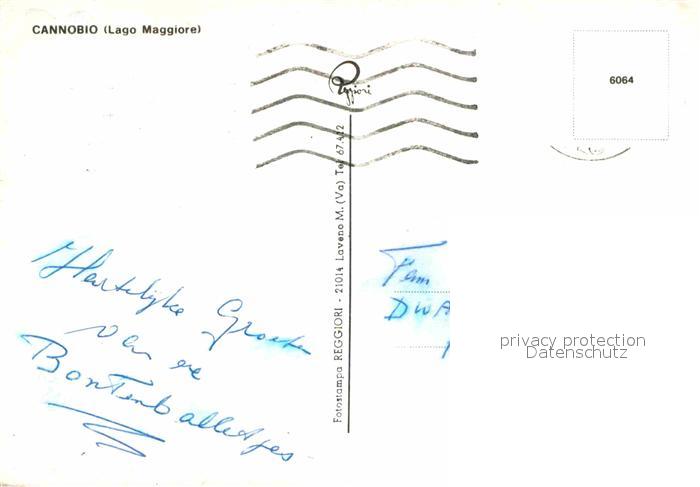 CANNOBIO (Lago Maggiore)
Reggiori
6064
Fotostampa REGGIORI - 21014 Laveno M. (Va) Tel 67.442
Hartelijke Groeten
van de
Bontenballetjes
Fam
DWA
privacy protection
Datenschutz